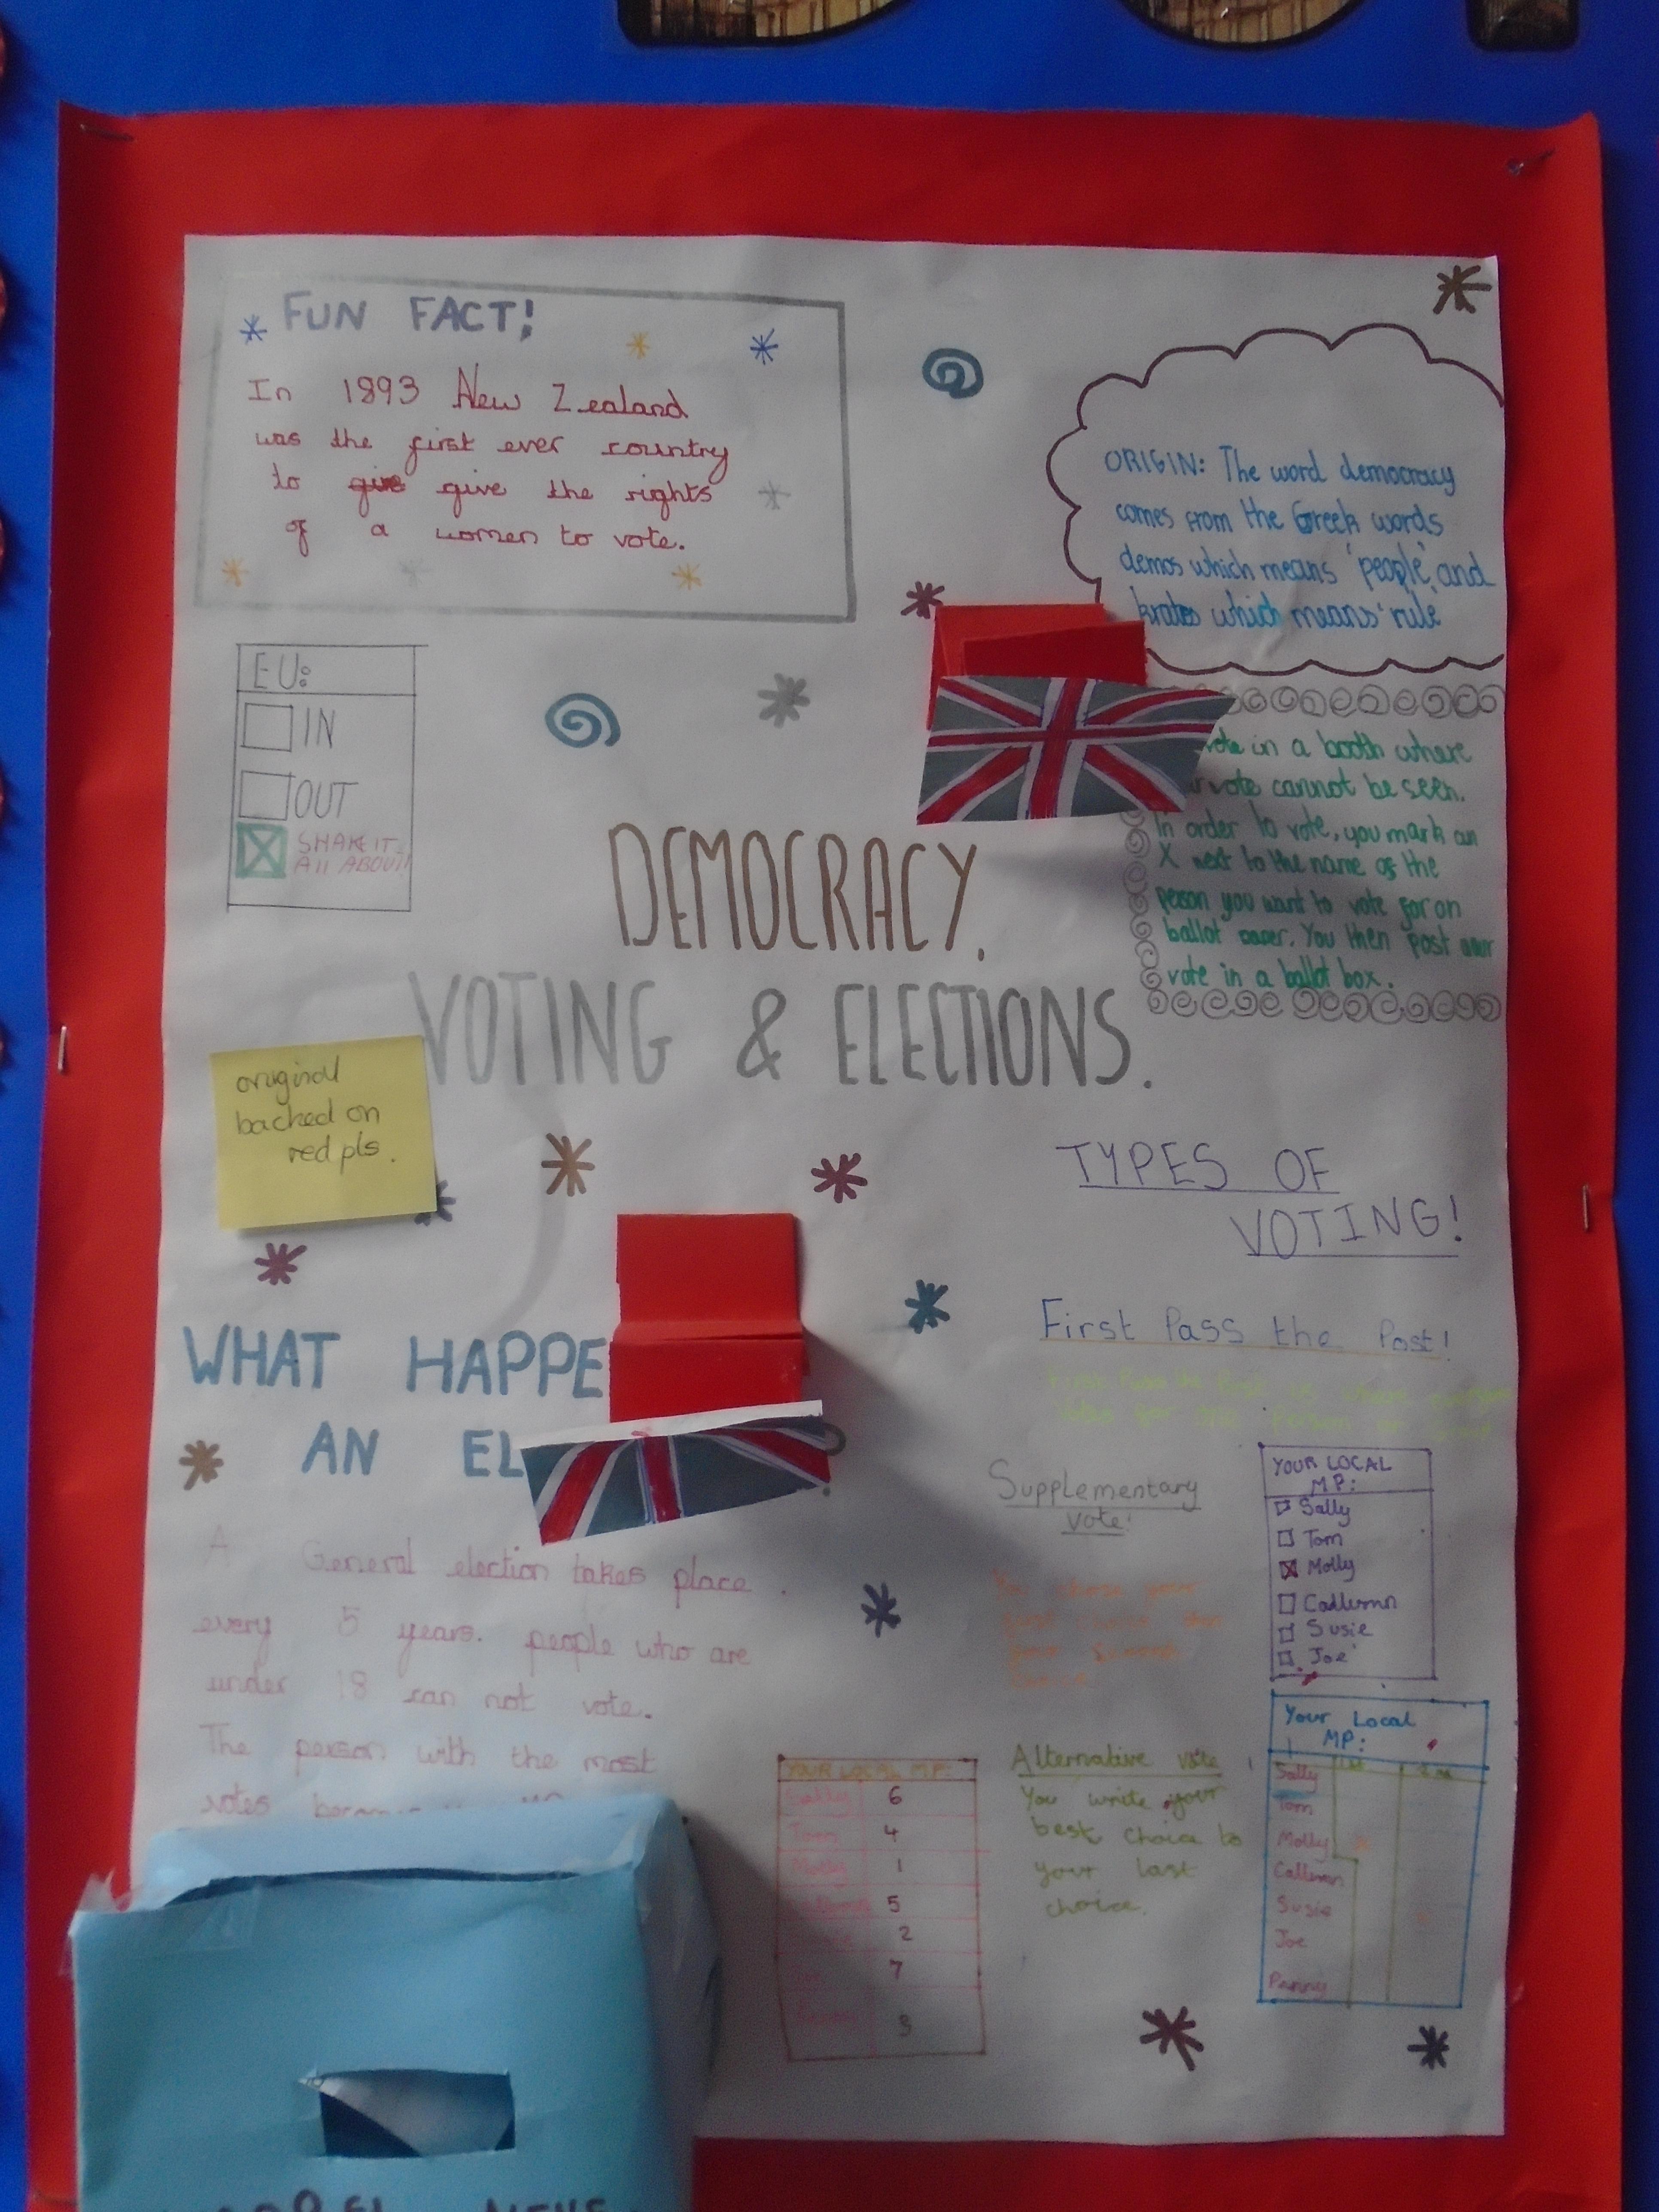 FUN FACT!
In 1893 New Zealand
was the first ever country
to give give the rights
of a women to vote.
ORIGIN: The word democracy
comes from the Greek words
demos which means 'people' and
kratos which means 'rule'
EU:
IN
OUT
SHAKE IT
All ABOUT!
vote in a booth where
vote cannot be seen.
In order to vote, you mark an
X next to the name of the
person you want to vote for on
ballot paper. You then post your
vote in a ballot box.
DEMOCRACY.
VOTING & ELECTIONS.
original
backed on
red pls.
TYPES OF
VOTING!
WHAT HAPPE
AN EL
A General election takes place
every 5 years. people who are
under 18 can not vote.
The person with the most
votes
First Pass the Post!
Supplementary
vote!
YOUR LOCAL
MP:
Sally
Tom
Molly
Callumn
Susie
Joe
Your Local
MP:
Sally
Tom
Molly
Callumn
Susie
Joe
Penny
Alternative vote
You write your
best choice to
your last
choice.
YOUR LOCAL MP:
Sally 6
Tom 4
Molly 1
5
2
7
3